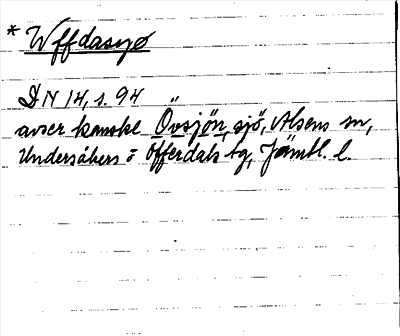 * Wffdasyo
DN 14, s. 94
avser kanske Övsjön, sjö, Alsens sn,
Undersåkers o Offerdals tg, Jämtl. l.